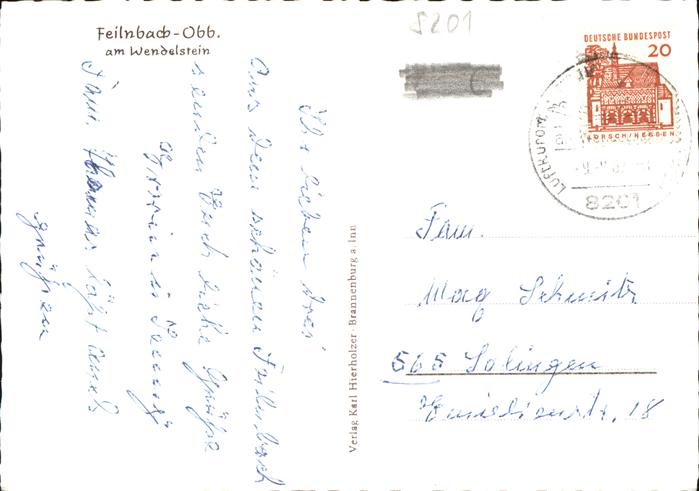 8201
Feilnbach-Obb.
am Wendelstein
DEUTSCHE BUNDESPOST
20
LORSCH/HESSEN
LUFTKURORT
8201
Ihr lieben drei
Aus dem schönen Feilnbach
senden Euch liebe Grüße
Fam. läßt auch
grüßen
Verlag Karl Hierholzer · Brannenburg a. Inn
Fam.
Mag Schmitz
565 Solingen
18